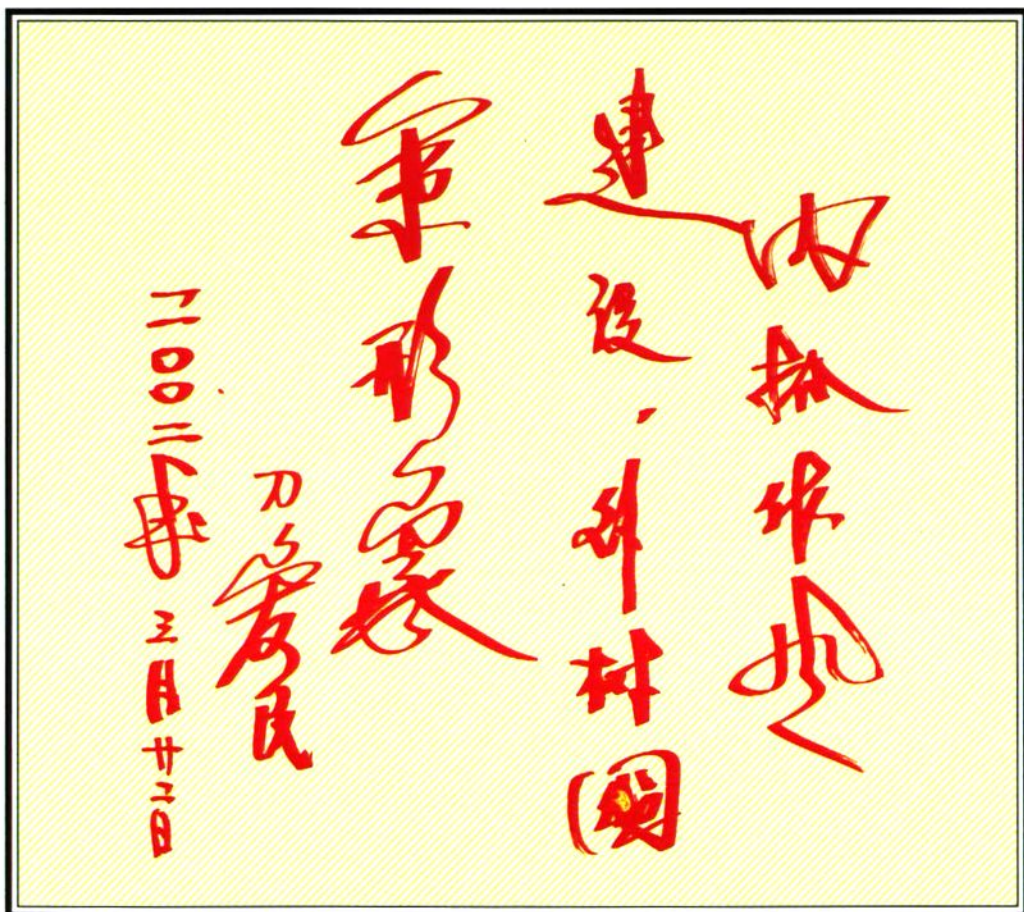 内抓作风
建设，外树國
军形象
刀爱民
二〇〇二年三月廿二日